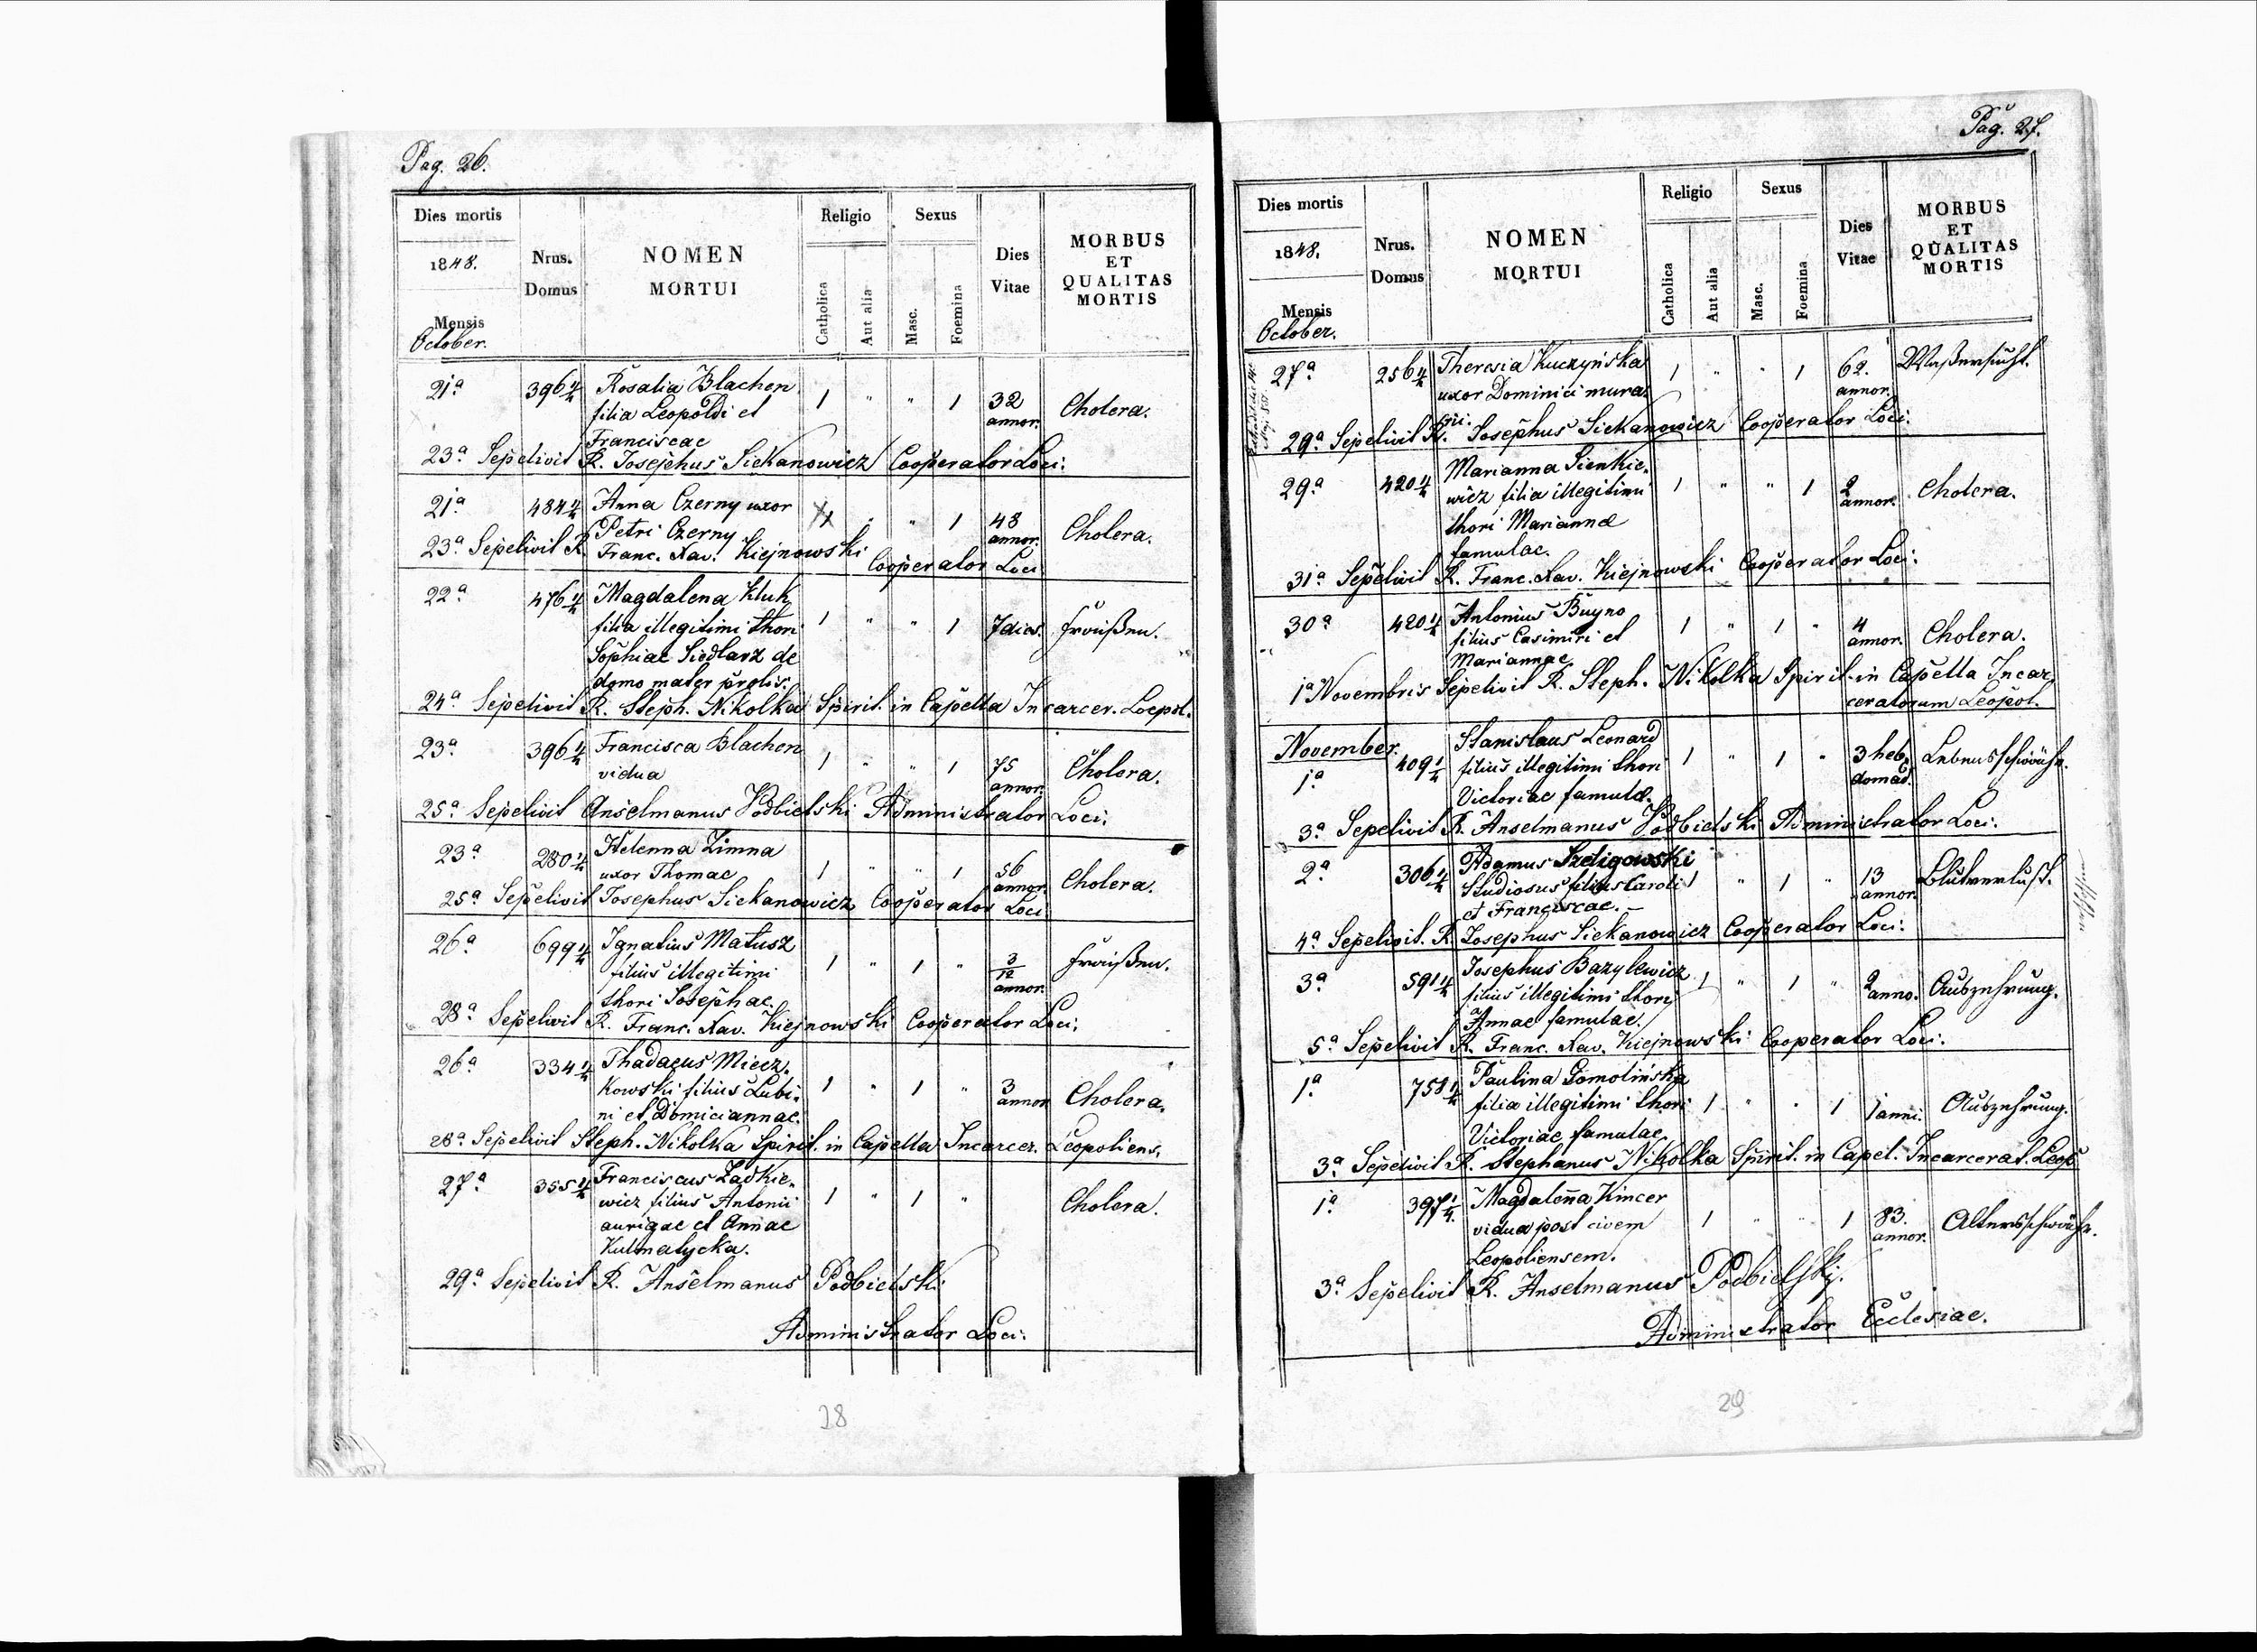 Pag. 26.
Dies mortis
1848.
Mensis
October.
Nrus.
Domus
NOMEN
MORTUI
Religio
Catholica
Aut alia
Sexus
Masc.
Foemina
Dies
Vitae
MORBUS
ET
QUALITAS
MORTIS
21a 396 4/4 Rosalia Blachon 1 " " 1 32 Cholera.
filia Leopoldi et annor.
Franciscae
23a Sepelivit R. Josephus Siekanowicz Cooperator Loci:
21a 484 4/4 Anna Czerny uxor 1 " " 1 48 Cholera.
Petri Czerny annor.
23a Sepelivit R. Franc. Xav. Kiejnowski Cooperator Loci
22a 476 4/4 Magdalena Kluk
filia illegitimi thori 1 " " 1 7 dies. Fraißen.
Sophiae Siodlarz de
domo mater prolis.
24a Sepelivit R. Steph. Nikolka Spirit. in Capella Incarcer. Loepol.
23a 396 4/4 Francisca Blachon 1 " " 1 75 Cholera.
vidua annor.
25a Sepelivit Anselmanus Podbielski Administrator Loci:
23a 280 4/4 Helenna Zimna 1 " " 1 56 Cholera.
uxor Thomae annor.
25a Sepelivit Josephus Siekanowicz Cooperator Loci
26a 699 4/4 Ignatius Matusz 1 " 1 " 3/12 Fraißen.
filius illegitimi annor.
thori Josephae.
28a Sepelivit R. Franc. Xav. Kiejnowski Cooperator Loci;
26a 334 4/4 Thadaeus Miecz-
kowski filius Lubi- 1 " 1 " 3 Cholera.
ni et Domiciannae. annor
28a Sepelivit Steph. Nikolka Spirit. in Capella Incarcer. Leopoliens.
27a 355 4/4 Franciscus Zadkie-
wicz filius Antonii 1 " 1 " Cholera.
aurigae et Annae
Kulmatycka.
29a Sepelivit R. Anselmanus Podbielski
Administrator Loci:
28
Pag. 27.
Dies mortis
1848.
Mensis
October.
Nrus.
Domus
NOMEN
MORTUI
Religio
Catholica
Aut alia
Sexus
Masc.
Foemina
Dies
Vitae
MORBUS
ET
QUALITAS
MORTIS
27a 256 4/4 Theresia Kuczyńska 1 " " 1 62. Waßersucht.
uxor Dominici mura- annor.
rii.
29a Sepelivit R. Josephus Siekanowicz Cooperator Loci:
29a 420 4/4 Marianna Sienkie-
wicz filia illegitimi 1 " " 1 2 Cholera.
thori Mariannae annor.
famulae.
31a Sepelivit R. Franc. Xav. Kiejnowski Cooperator Loci:
30a 420 4/4 Antonius Buyno 1 " 1 " 4 Cholera.
filius Casimiri et annor.
Mariannae
1a Novembris Sepelivit R. Steph. Nikolka Spirit. in Capella Incar-
ceratorum Leopol.
November.
1a 409 1/4 Stanislaus Leonard
filius illegitimi thori 1 " 1 " 3 heb- Lebensschwäche.
Victoriae famulae. domad.
3a Sepelivit R. Anselmanus Podbielski Administrator Loci.
2a 306 4/4 Adamus Szeligowski
Studiosus filius Caroli 1 " 1 " 13 Blutverlust.
et Franciscae. annor.
4a Sepelivit. R. Josephus Siekanowicz Cooperator Loci:
3a 591 4/4 Josephus Bazylewicz 1 " 1 " 2 anno. Auszehrung.
filius illegitimi thori
Annae famulae.
5a Sepelivit R. Franc. Xav. Kiejnowski Cooperator Loci.
1a 758 4/4 Paulina Gomolińska
filia illegitimi thori 1 " " 1 1 anni. Auszehrung.
Victoriae famulae.
3a Sepelivit R. Stephanus Nikolka Spirit. in Capel. Incarcerat. Leop
1a 397 1/4 Magdalena Kincer
vidua post civem 1 " " 1 83. Altersschwäche.
Leopoliensem. annor.
3a Sepelivit R. Anselmanus Podbielski.
Administrator Ecclesiae.
29